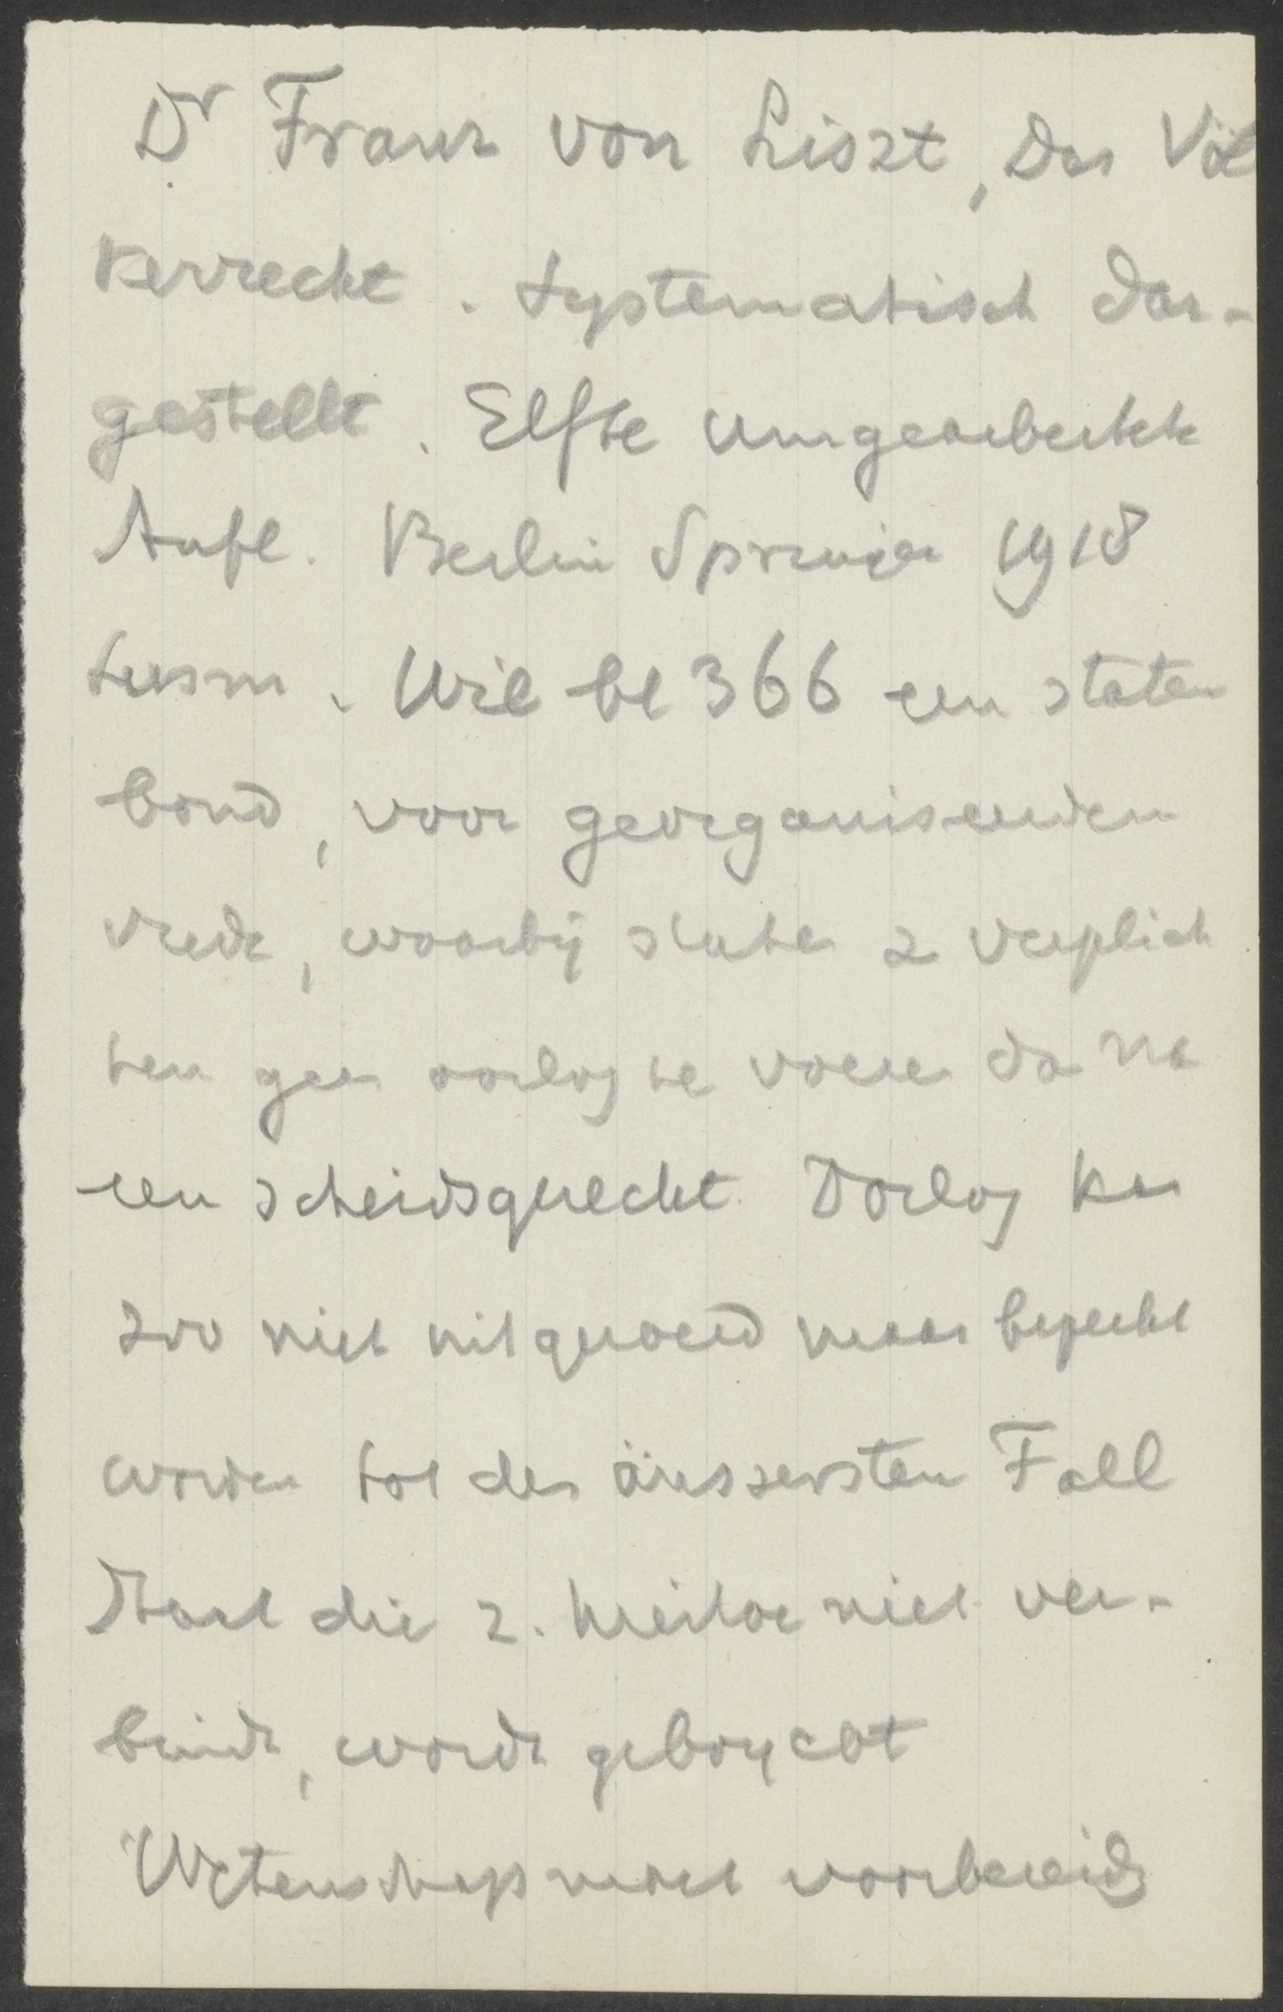 Dr Franz von Liszt, Das Völ
kerrecht. Systematisch dar-
gestellt. Elfte umgearbeitete
Aufl. Berlin Springer 1918
Wil bl 366 een staten
bond, voor georganiseerden
vrede, waarbij staten z verplich
ten geen oorlog te voeren dan na
een scheidsgerecht. Oorlog kan
zoo niet uitgeroeid maar beperkt
worden tot den äussersten Fall
Staat die z. hiertoe niet ver-
bindt, wordt geboycot
Wetenschap moet voorbereid